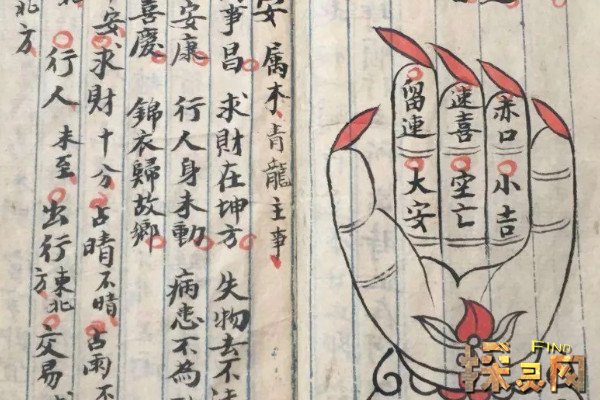 留連
速喜
赤口
大安
空亡
小吉
安 属木青龍主事
事昌 求財在坤方 失物去不
安康 行人身未動 病患不為
喜慶 錦衣歸故鄉
安求財十分占晴不晴占雨不
行人未至出行東北方交易
北方
FIND
探灵网